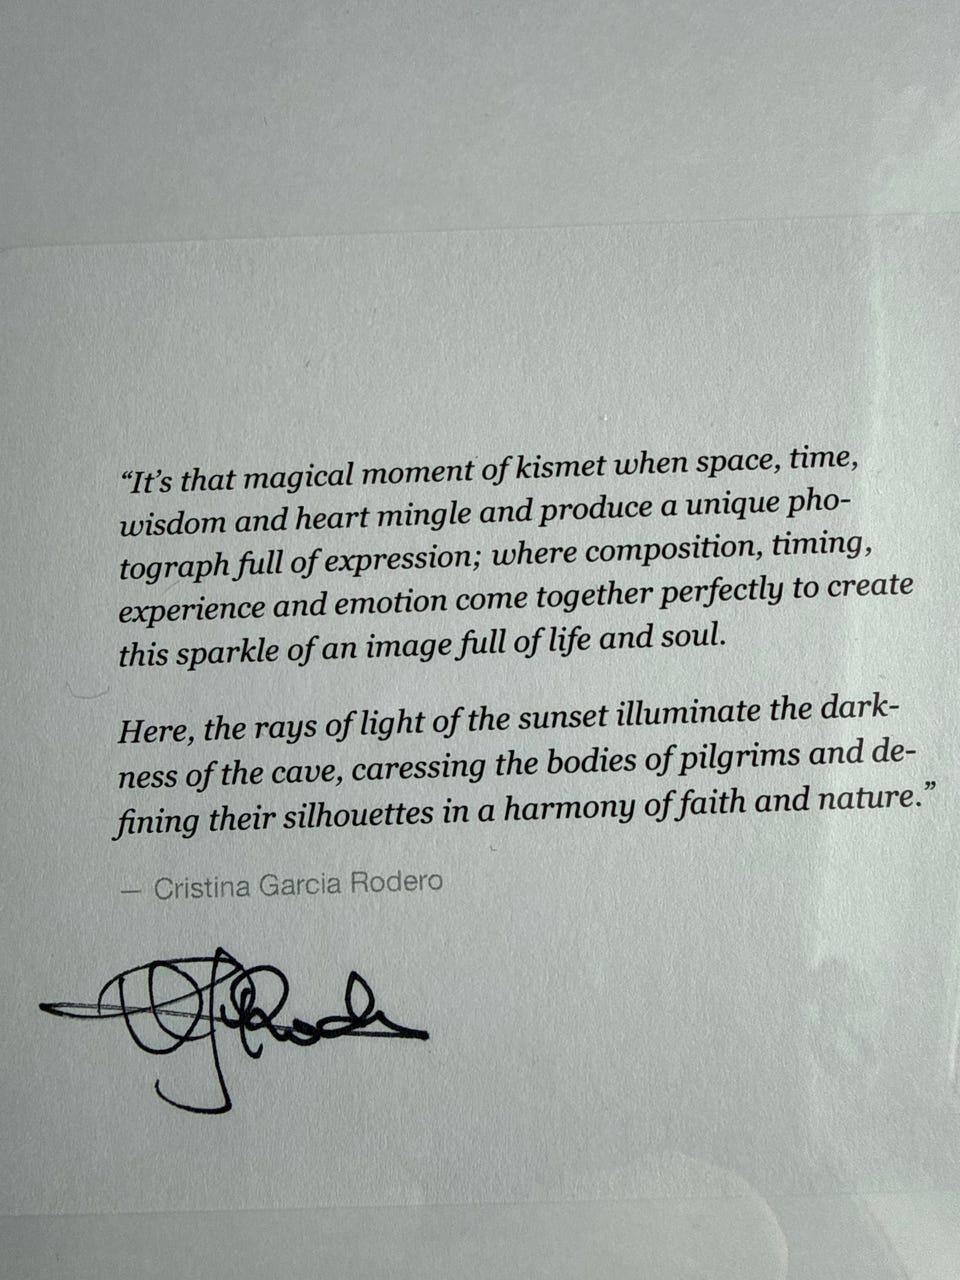 “It’s that magical moment of kismet when space, time,
wisdom and heart mingle and produce a unique pho-
tograph full of expression; where composition, timing,
experience and emotion come together perfectly to create
this sparkle of an image full of life and soul.
Here, the rays of light of the sunset illuminate the dark-
ness of the cave, caressing the bodies of pilgrims and de-
fining their silhouettes in a harmony of faith and nature.”
— Cristina Garcia Rodero